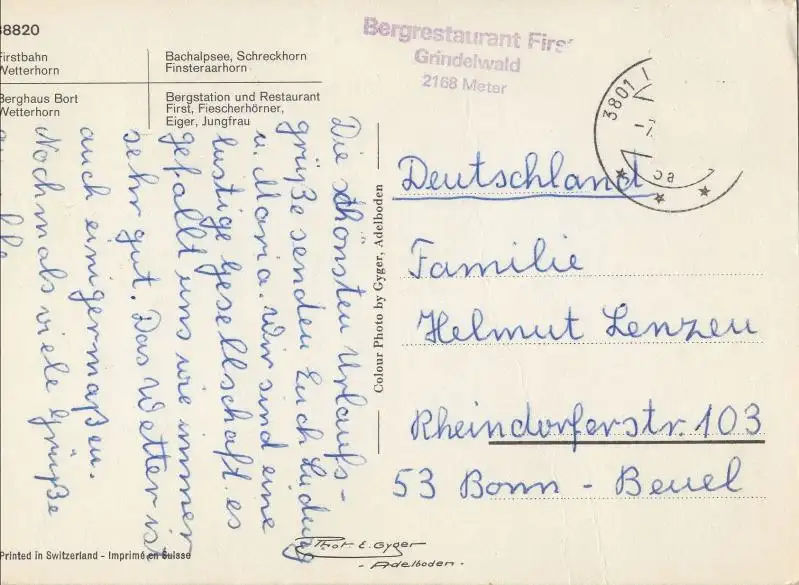 38820
Firstbahn
Wetterhorn
Bachalpsee, Schreckhorn
Finsteraarhorn
Berghaus Bort
Wetterhorn
Bergstation und Restaurant
First, Fiescherhörner,
Eiger, Jungfrau
Bergrestaurant First
Grindelwald
2168 Meter
3801
Die schönsten Urlaubs-
grüße senden Euch Ludwig
u. Maria. Wir sind eine
lustige Gesellschaft. es
gefällt uns wie immer
sehr gut. Das Wetter ist
auch einigermaßen.
Nochmals viele Grüße
Colour Photo by Gyger, Adelboden
Deutschland
Familie
Helmut Lenzen
Rheindorferstr. 103
53 Bonn - Beuel
Phot. E. Gyger
- Adelboden -
Printed in Switzerland - Imprimé en Suisse